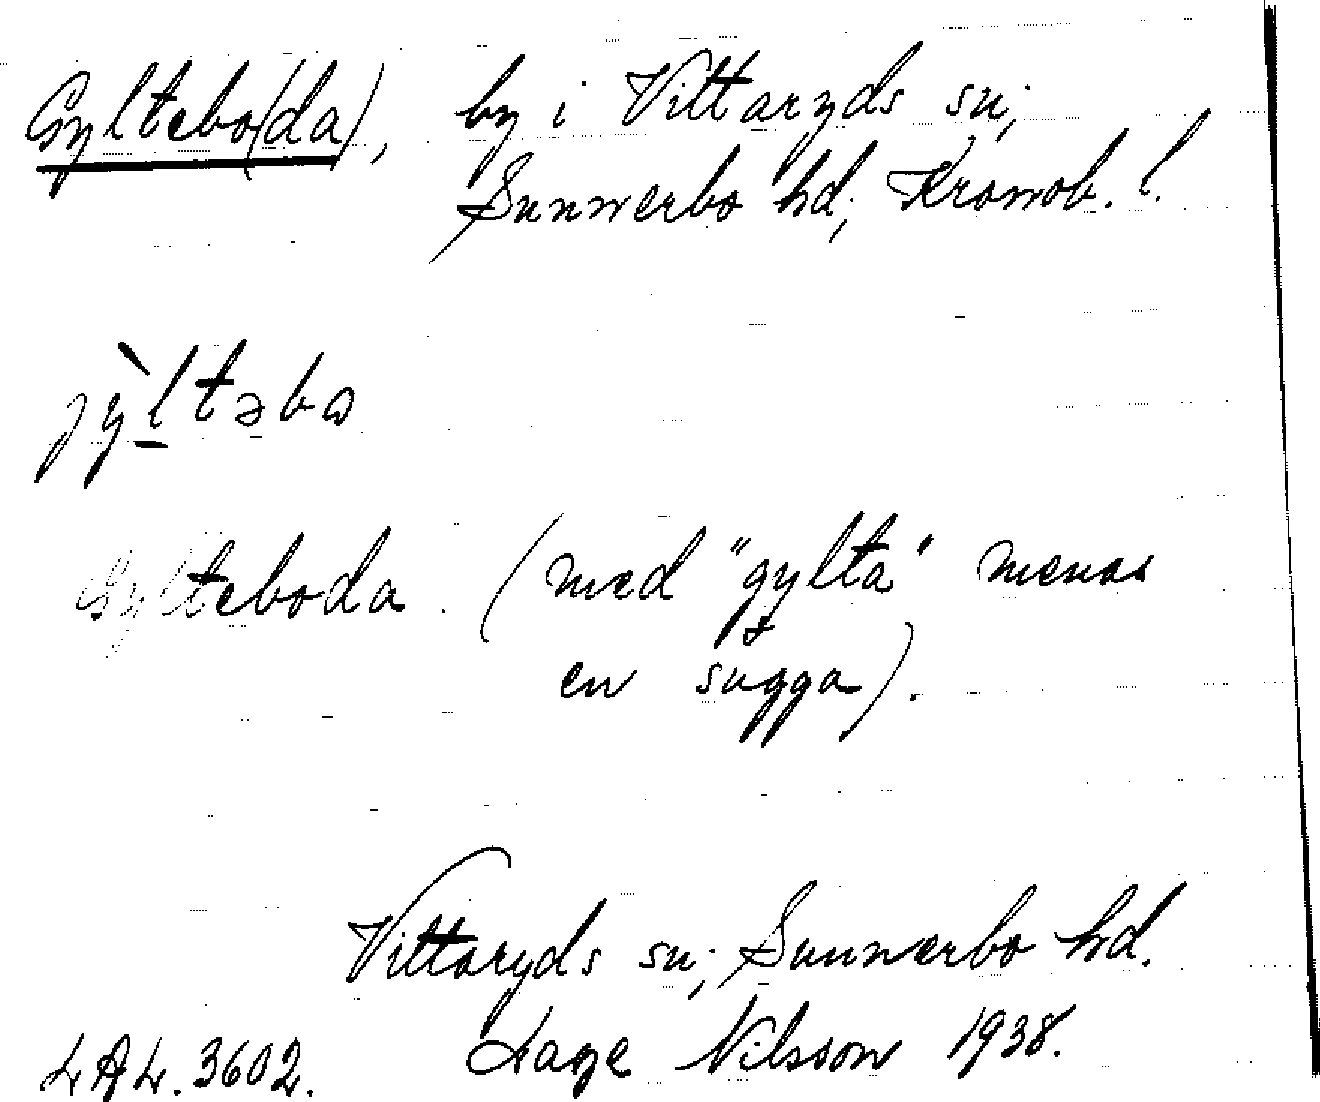 Gyltebo(da), by i Vittaryds sn;
Sunnerbo hd; Kronob. l.
jỳltəbo
Gylteboda. (med "gylta" menas
en sugga).
Vittaryds sn; Sunnerbo hd.
LAL. 3602. Lage Nilsson 1938.